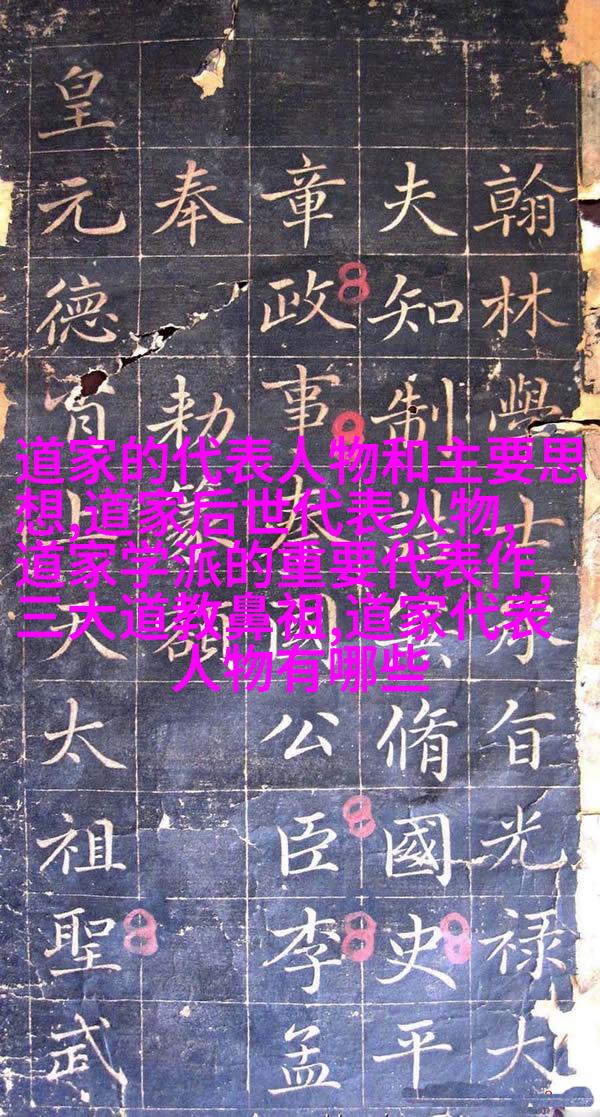 翰林學士承旨光禄大
夫知制誥兼脩國史平
章政事秦國公臣李孟
奉勅篆額
皇元德肖上天太祖聖武
道家的代表人物和主要思
想,道家后世代表人物,
道家学派的重要代表作,
三大道教鼻祖,道家代表
人物有哪些